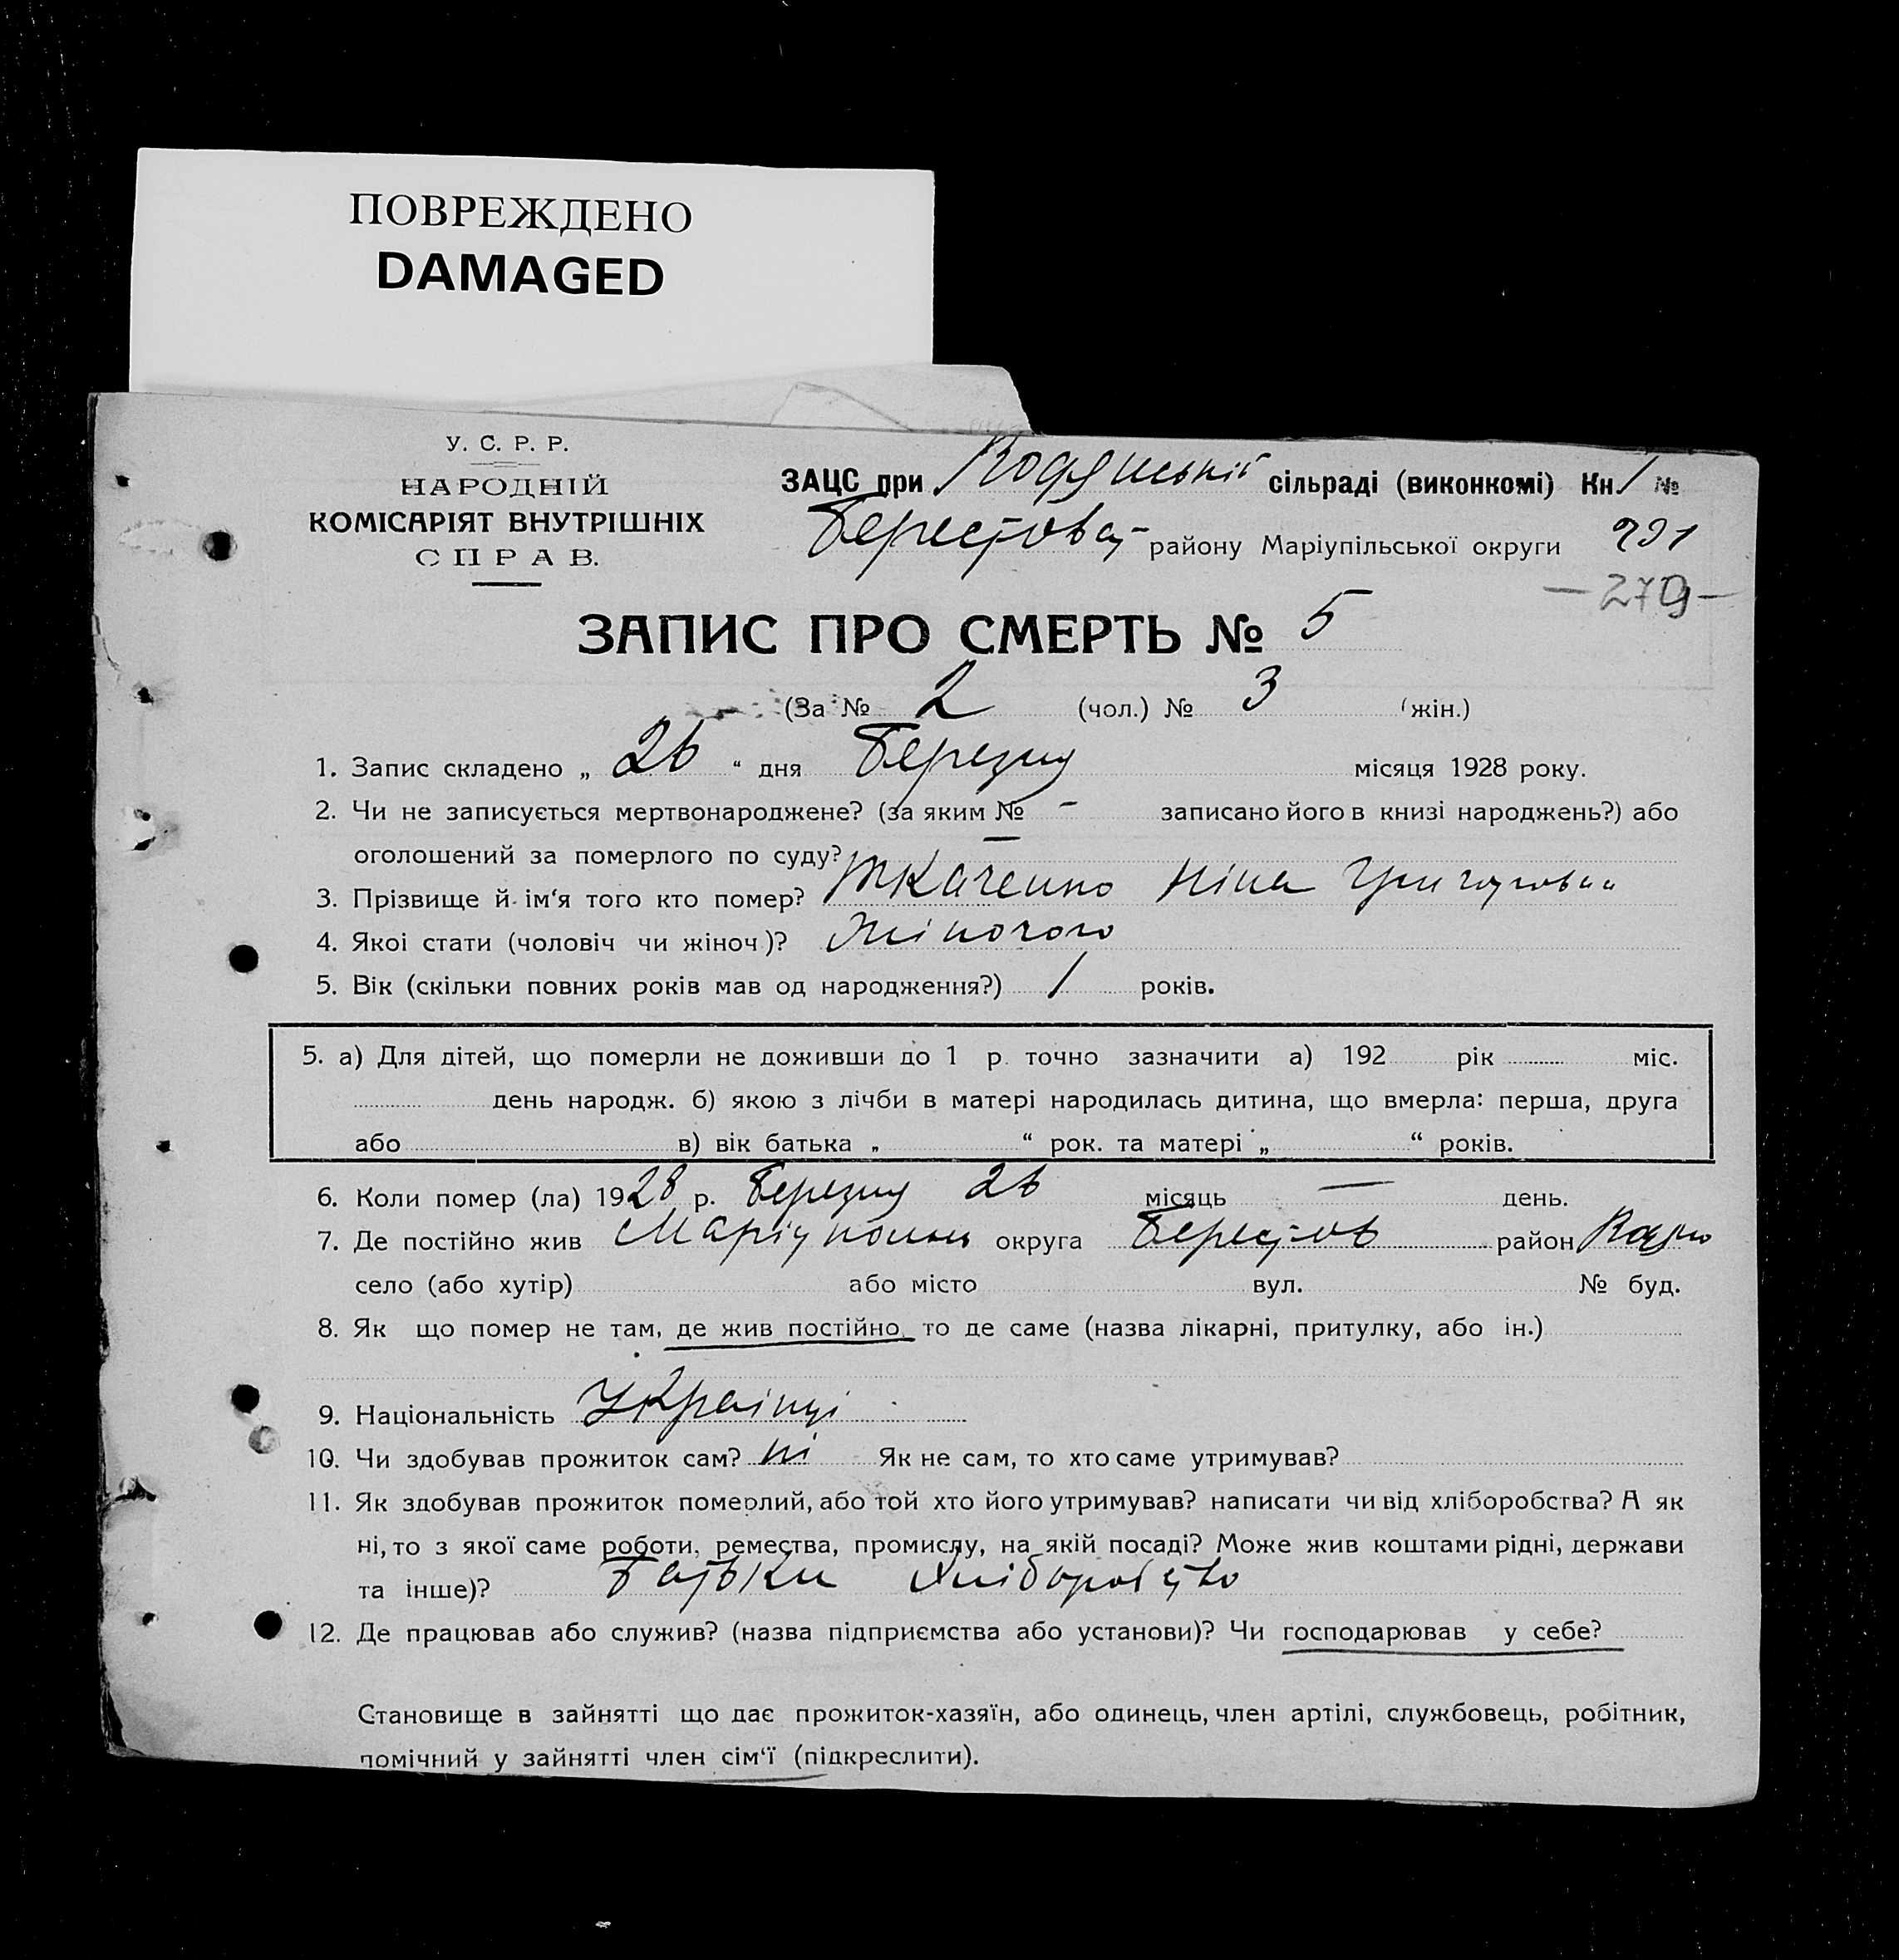 ПОВРЕЖДЕНО
DAMAGED
У. С. Р. Р.
НАРОДНІЙ
КОМІСАРІЯТ ВНУТРІШНІХ
СПРАВ.
ЗАЦС при сільраді (виконкомі) Кн 1 №
Берестова- району Маріупільської округи 291
-279-
ЗАПИС ПРО СМЕРТЬ № 5
(За № 2 (чол.) № 3 (жін.)
1. Запис складено „ 26 “ дня Березня місяця 1928 року.
2. Чи не записується мертвонароджене? (за яким № - записано його в книзі народжень?) або
оголошений за померлого по суду? —
3. Прізвище й ім‘я того кто помер? Ткаченко Ніна Григоровна
4. Якоі стати (чоловіч чи жіноч)? Жіночого
5. Вік (скільки повних років мав од народження?) 1 років.
5. а) Для дітей, що померли не доживши до 1 р. точно зазначити а) 192 рік міс.
день народж. б) якою з лічби в матері народилась дитина, що вмерла: перша, друга
або в) вік батька „ “ рок. та матері „ “ років.
6. Коли помер (ла) 1928 р. Березня 26 місяць — день.
7. Де постійно жив округа Берестов район
село (або хутір) або місто вул. № буд.
8. Як що помер не там, де жив постійно, то де саме (назва лікарні, притулку, або ін.)
9. Національність Украінці
10. Чи здобував прожиток сам? ні Як не сам, то хто саме утримував?
11. Як здобував прожиток померлий, або той хто його утримував? написати чи від хліборобства? А як
ні, то з якої саме роботи, ремества, промислу, на якій посаді? Може жив коштами рідні, держави
та інше)? Батьки Хліборобство
12. Де працював або служив? (назва підприємства або установи)? Чи господарював у себе?
Становище в зайнятті що дає прожиток-хазяїн, або одинець, член артілі, службовець, робітник,
помічний у зайнятті член сім‘ї (підкреслити).